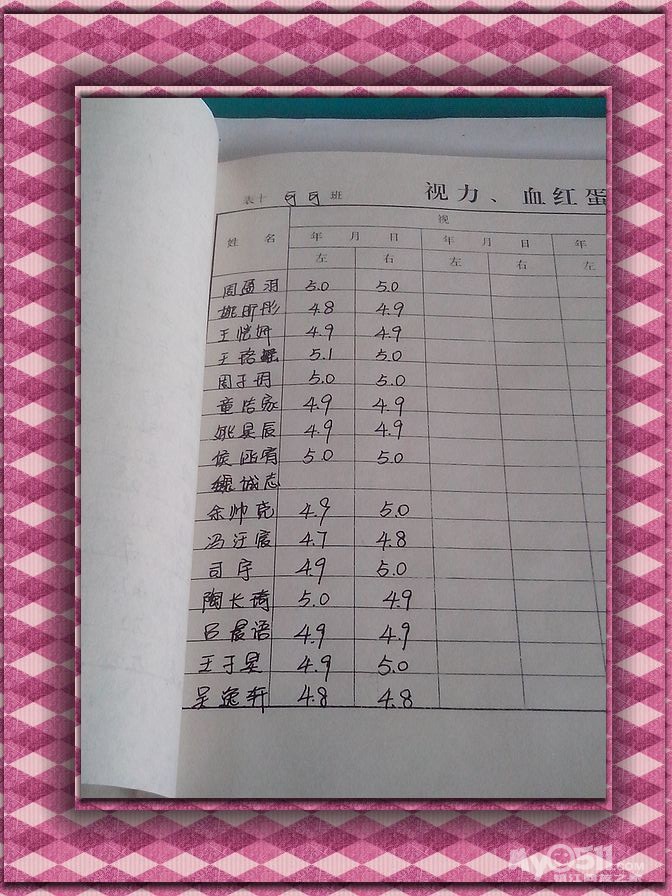 表十 班 视力、血红蛋
姓 名 视
年 月 日 年 月 日 年
左 右 左 右 左
周 羽 5.0 5.0
姚昕彤 4.8 4.9
王恺妍 4.9 4.9
王珞 5.1 5.0
周子玥 5.0 5.0
童浩家 4.9 4.9
姚昊辰 4.9 4.9
侯 宥 5.0 5.0
诚志
余帅尧 4.9 5.0
冯汪宸 4.7 4.8
司宇 4.9 5.0
陶长琦 5.0 4.9
吕晨语 4.9 4.9
王子昱 4.9 5.0
吴逸轩 4.8 4.8
My0511.COM
镇江网友之家